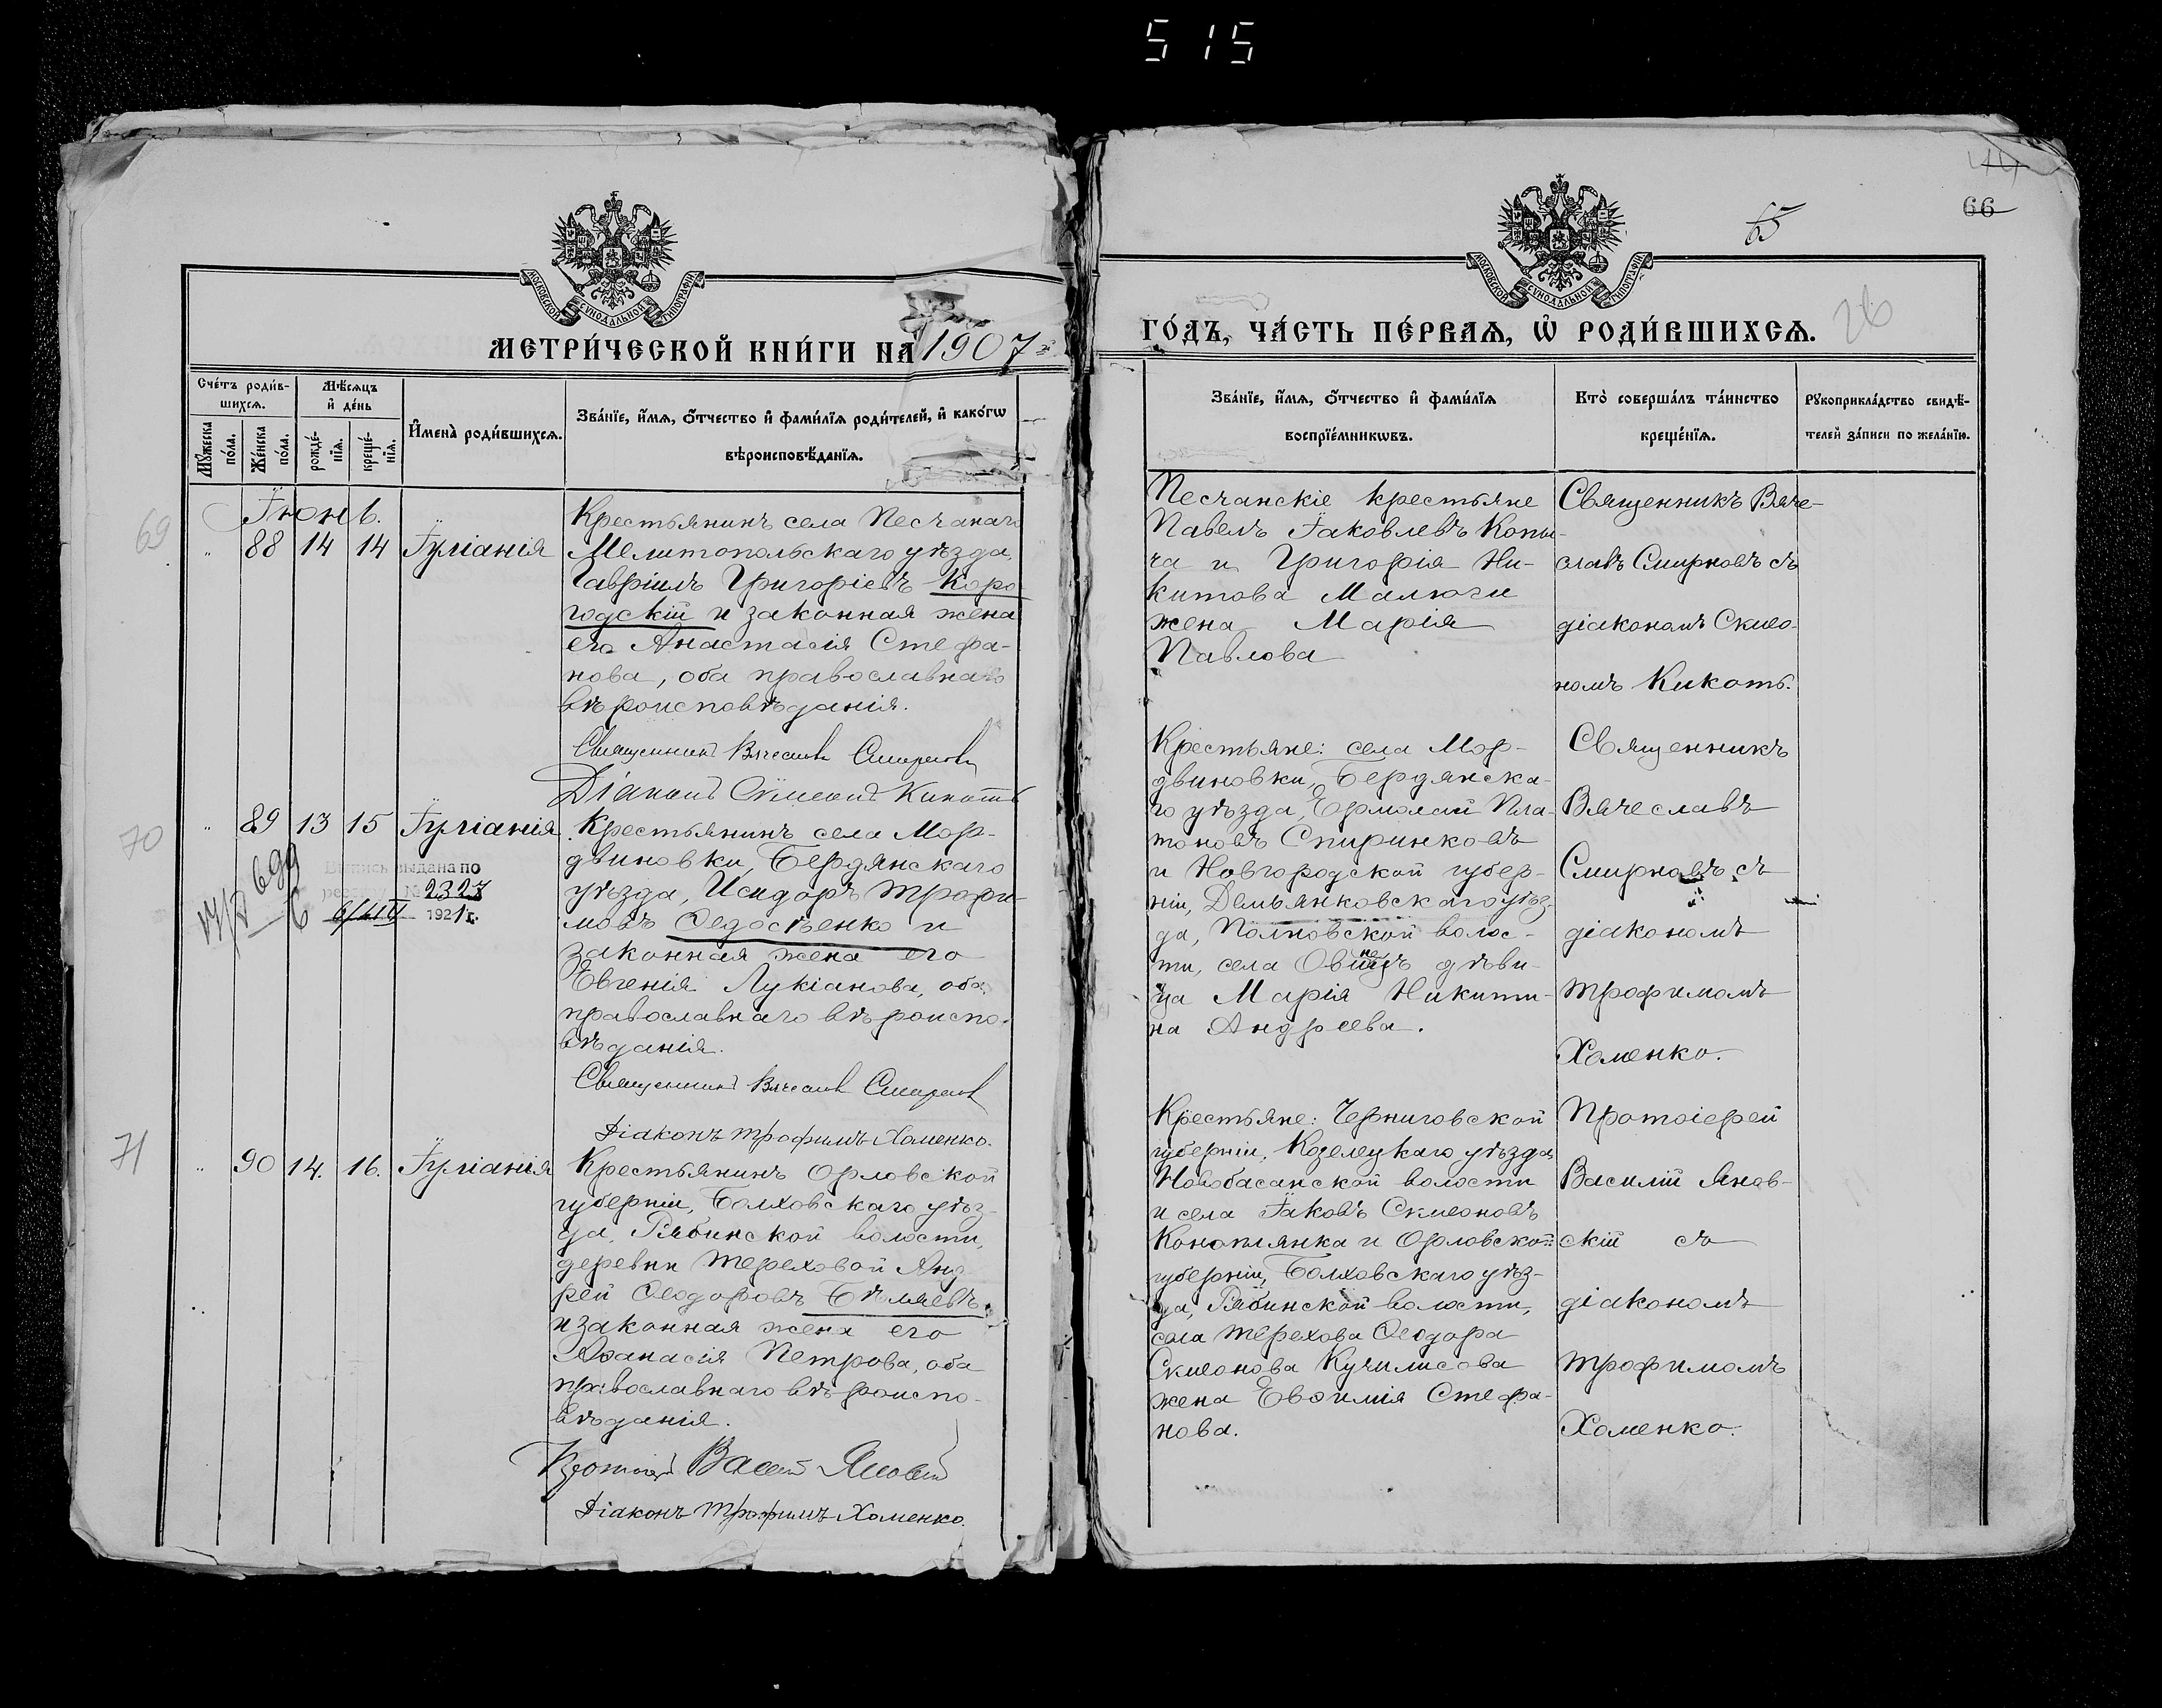 515
МОСКОВСКОЙ СѴНОДАЛЬНОЙ ТИПОГРАФІИ
МЕТРИ́ЧЕСКОЙ КНИ́ГИ НА 1907
Сче́тъ роди́в-
шихсѧ.
Мѣ́сѧцъ
и҆ де́нь
Мꙋ́жеска по́ла.
Же́нска по́ла.
рожде́-
нїѧ.
креще́-
нїѧ.
И҆мена̀ роди́вшихсѧ.
Зва́нїе, и҆́мѧ, ѻ҆́тчество и҆ фами́лїѧ роди́телей, и҆ како́гѡ
вѣроисповѣ́данїѧ.
Іюнь.
69
88 14 14 Іуліанія
Крестьянинъ села Песчанаго
Мелитопольскаго уѣзда,
Гавріилъ Григоріевъ Коро
годскій и законная жена
его Анастасія Стефа-
нова, оба православнаго
вѣроисповѣданія.
Священникъ Вячеславъ Смирновъ
Діаконъ Сѵмеонъ Кикоть
70
89 13 15 Іуліанія
Крестьянинъ села Мор-
двиновки, Бердянскаго
уѣзда, Исидоръ Трофи-
мовъ Ѳедосѣенко и
законная жена его
Евгенія Лукіанова, оба
православнаго вѣроиспо-
вѣданія.
выдана по
№ 2327
1921 г.
699
Священникъ Вячеславъ Смирновъ
Діаконъ Трофимъ Хоменко.
71
90 14. 16. Іуліанія
Крестьянинъ Орловской
губерніи, Болховскаго уѣз-
да, Рябинской волости,
деревни Тереховой Анд
рей Ѳеодоровъ Бѣляевъ
и законная жена его
Аѳанасія Петрова, оба
православнаго вѣроиспо-
вѣданія.
Протоіерей Василій Яновскій
Діаконъ Трофимъ Хоменко.
66
65
МОСКОВСКОЙ СѴНОДАЛЬНОЙ ТИПОГРАФІИ
26
ГО́ДЪ, ЧА́СТЬ ПЕ́РВАѦ, Ѽ РОДИ́ВШИХСѦ.
Зва́нїе, и҆́мѧ, ѻ҆́тчество и҆ фами́лїѧ
воспрїе́мникѡвъ.
Кто̀ соверша́лъ та́инство
креще́нїѧ.
Рꙋкоприкла́дство свидѣ́-
телей за́писи по жела́нїю.
Песчанскіе крестьяне
Павелъ Іаковлевъ Копы-
ча и Григорія Ни-
китова Малюги
жена Марія
Павлова
Священникъ Вяче-
славъ Смирновъ съ
діакономъ Симео-
номъ Кикоть.
Крестьяне: села Мор-
двиновки, Бердянска-
го уѣзда, Ермолай Пла-
тоновъ Спиринковъ
и Новгородской губер-
ніи, Демьянковскаго уѣз-
да, Полновской волос-
ти, села дѣви-
ца Марія Никити-
на Андреева.
Священникъ
Вячеславъ
Смирновъ съ
діакономъ
Трофимомъ
Хоменко.
Крестьяне: Черниговской
губерніи, Козелецкаго уѣзда,
Новобасанской волости
и села Іаковъ Симеоновъ
Коноплянка и Орловской
губерніи, Болховскаго уѣз-
да, Рябинской волости,
села Терехова Ѳеодора
Симеонова Кучилисова
жена Евѳимія Стефа-
нова.
Протоіерей
Василій Янов-
скій съ
діакономъ
Трофимомъ
Хоменко.